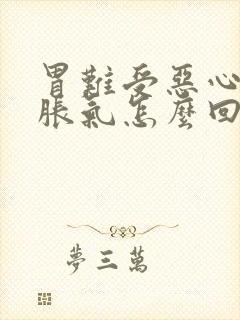 胃難受惡心
脹氣怎麼回
夢三萬